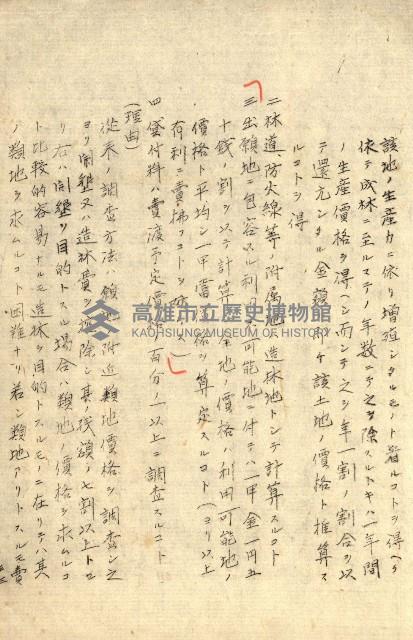 該地ノ生産力ニ依リ増殖シタルモノト看ルコトヲ得ヘク
依テ成林ニ至ルマテノ年数ニテ之ヲ除スルトキハ一年間
ノ生産價格ヲ得ヘシ而シテ之ヲ年一割ノ割合ヲ以
テ還元シタル金額ハ該土地ノ價格ト推算ス
ルコトヲ得
二 林道防火線等ノ附属地ハ造林地トシテ計算スルコト
三 出願地ニ包容スル利用不可能地ニ付テハ一甲金一円五
十銭ノ割ヲ以テ計算シ全地ノ價格ハ利用可能地ノ
價格ト平均シ一甲當價格ヲ算定スルコト(ヨリ以上
有利ニ賣拂
四 貸付料ハ賣渡予定價格ノ百分ノ一以上ニ調査スルコト
(理由)
從来ノ調査方法ハ願地附近類地價格ヲ調査シ之
ヨリ開墾又ハ造林費ヲ控除シ其ノ残額ノ七割以上トセ
リ右ハ開墾ヲ目的トスル場合ハ類地ノ價格ヲ求ムルコ
ト比較的容易ナルモ造林ヲ目的トスルモノニ在リテハ其
ノ類地ヲ求ムルコト困難ナリ若シ類地アリトスルモ賣
高雄市立歷史博物館
KAOHSIUNG MUSEUM OF HISTORY